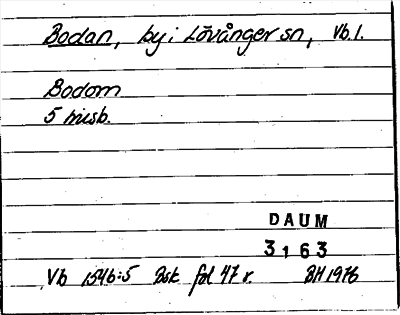 Bodan, by i Lövånger sn, Vb.l.
Bodom
5 misb.
DAUM
3163
Vb 1546:5 Bsk fol 47 r. BH 1976